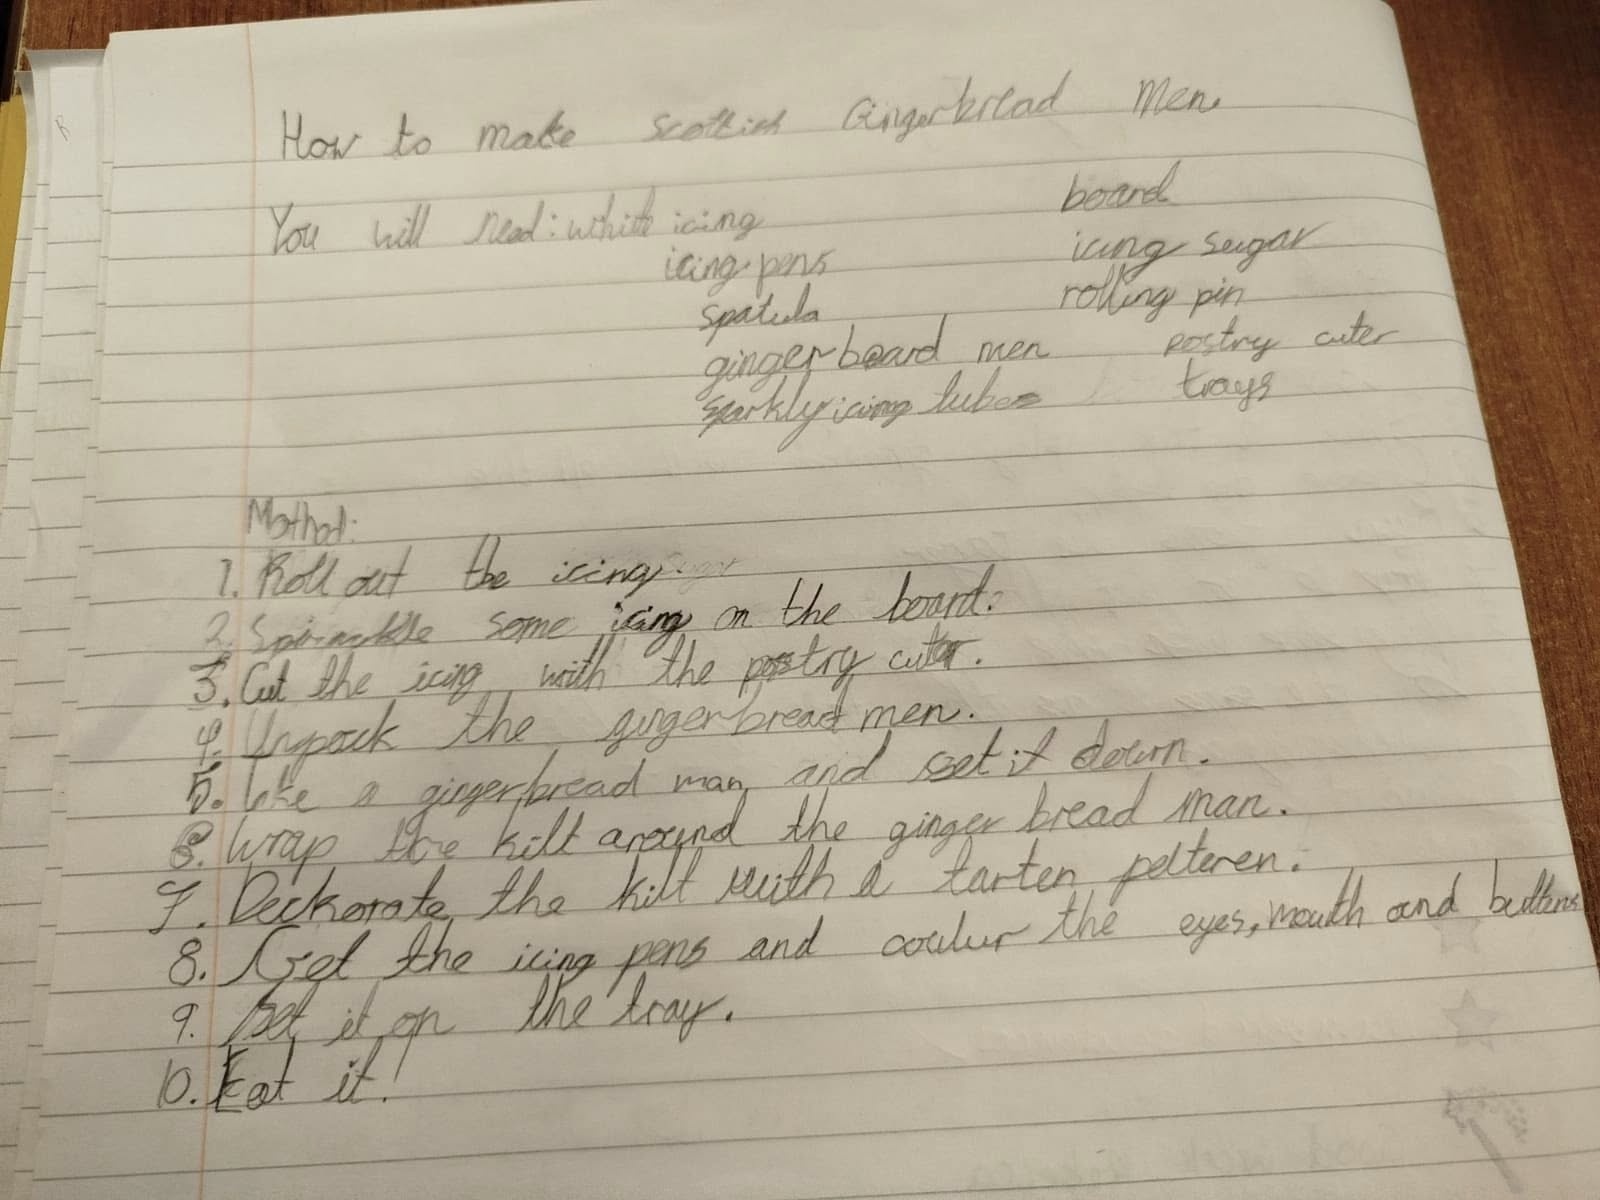 How to make Scottish Gingerbread Men.
You will need: white icing
icing pens
spatula
gingerboard men
sparkly icing tubes
board
icing sugar
rolling pin
pastry cuter
trays
Method:
1. Roll out the icing.
2. Sprinkle some icing on the board.
3. Cut the icing with the pastry cuter.
4. Unpack the gingerbread men.
5. take a gingerbread man and set it down.
6. Wrap the kilt around the ginger bread man.
7. Deckorate the kilt with a tarten pelteren.
8. Get the icing pens and coulur the eyes, mouth and buttens
9. Set it on the tray.
10. Eat it!